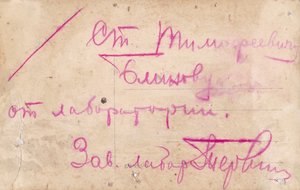 Ст. Тимофеевич
Блинову
от лаборатории.
Зав. лабор